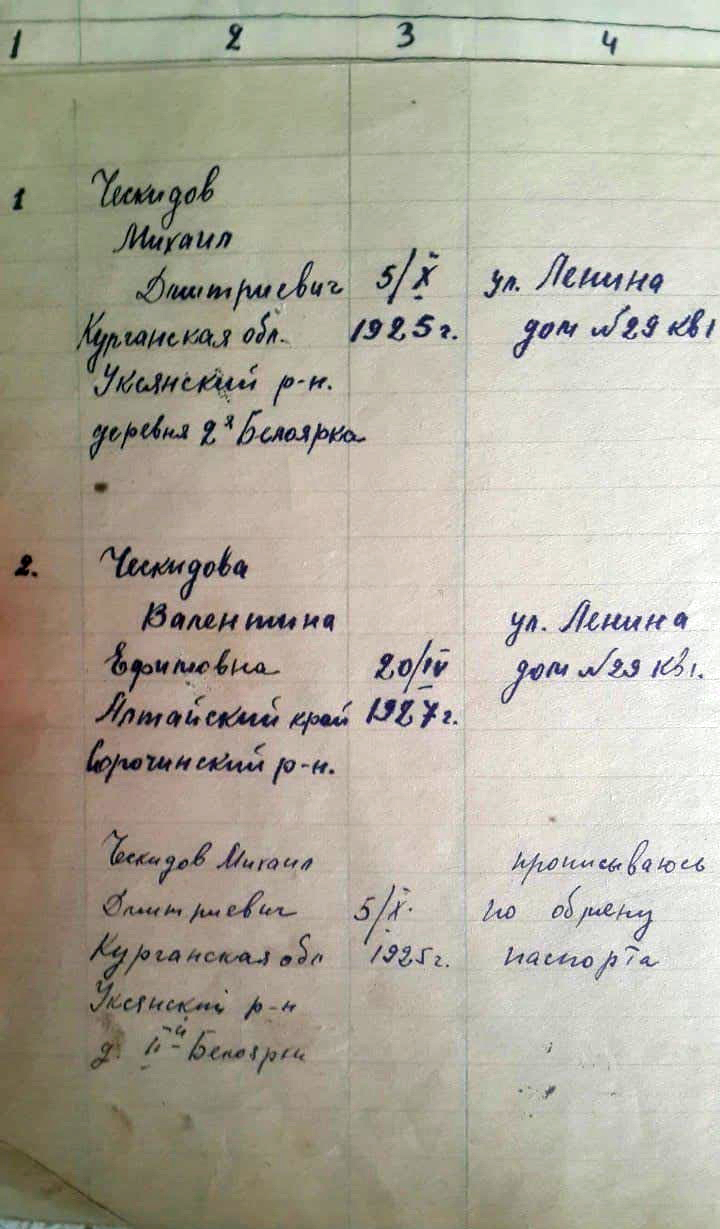 1 2 3 4
1 Ческидов
Михаил
Дмитриевич 5/X ул. Ленина
Курганская обл. 1925г. дом №29 кв1
Уксянский р-н.
деревня 2я Белоярка
2. Ческидова
Валентина ул. Ленина
Ефимовна 20/IV дом №29 кв1.
Алтайский край 1927г.
Сорочинский р-н.
Ческидов Михаил прописываюсь
Дмитриевич 5/X. по обмену
Курганская обл 1925г. паспорта
Уксянский р-н
д. II-й Белоярки